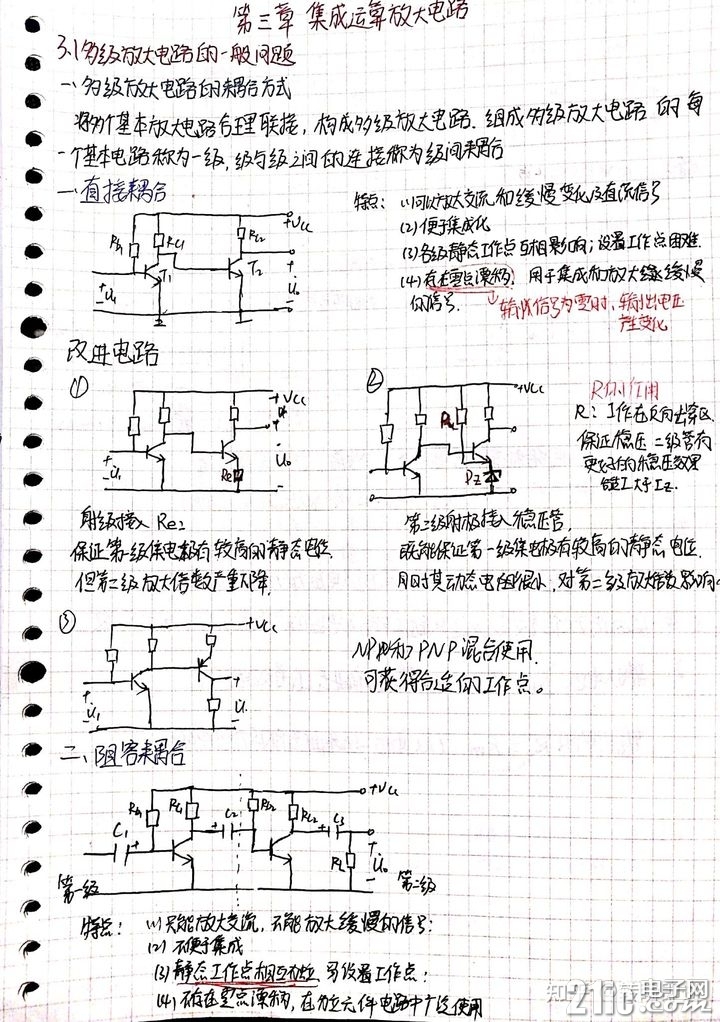 第三章 集成运算放大电路
3.1 多级放大电路的一般问题
一、多级放大电路的耦合方式
将多个基本放大电路合理联接，构成多级放大电路. 组成多级放大电路的每
一个基本电路称为一级, 级与级之间的连接称为级间耦合
一、直接耦合
特点: (1)可以放大交流和缓慢变化及直流信号
(2)便于集成化
(3)各级静态工作点互相影响; 设置工作点困难.
(4)存在零点漂移. 用于集成和放大缓慢
的信号.
输入信号为零时, 输出电压
产生变化
+Vcc
Rb1 Rc1 Rc2
T1 T2
U̇i U̇o
改进电路
①
+Vcc
U̇i Re2 U̇o
射级接入 Re2
保证第一级集电极有较高的静态电位
但第二级放大倍数严重下降.
②
+Vcc
R
Dz
R的作用
R: 工作在反向击穿区.
保证稳压二级管有
更好的稳压效果
Iz.
第二级射极接入稳压管,
既能保证第一级集电极有较高的静态电位.
同时其动态电阻很小, 对第二级放大倍数影响
③
+Vcc
U̇i U̇
NPN和PNP混合使用.
可获得合适的工作点。
二、阻容耦合
+Vcc
Rb1 Rc1 Rb2 Rc2
C1 C2 C3
RL U̇o
第一级 第二级
特点: (1)只能放大交流, 不能放大缓慢的信号;
(2) 不便于集成
(3)静态工作点相互独立 易设置工作点;
(4)不存在零点漂移, 在分立元件电路中广泛使用
21ic电子网